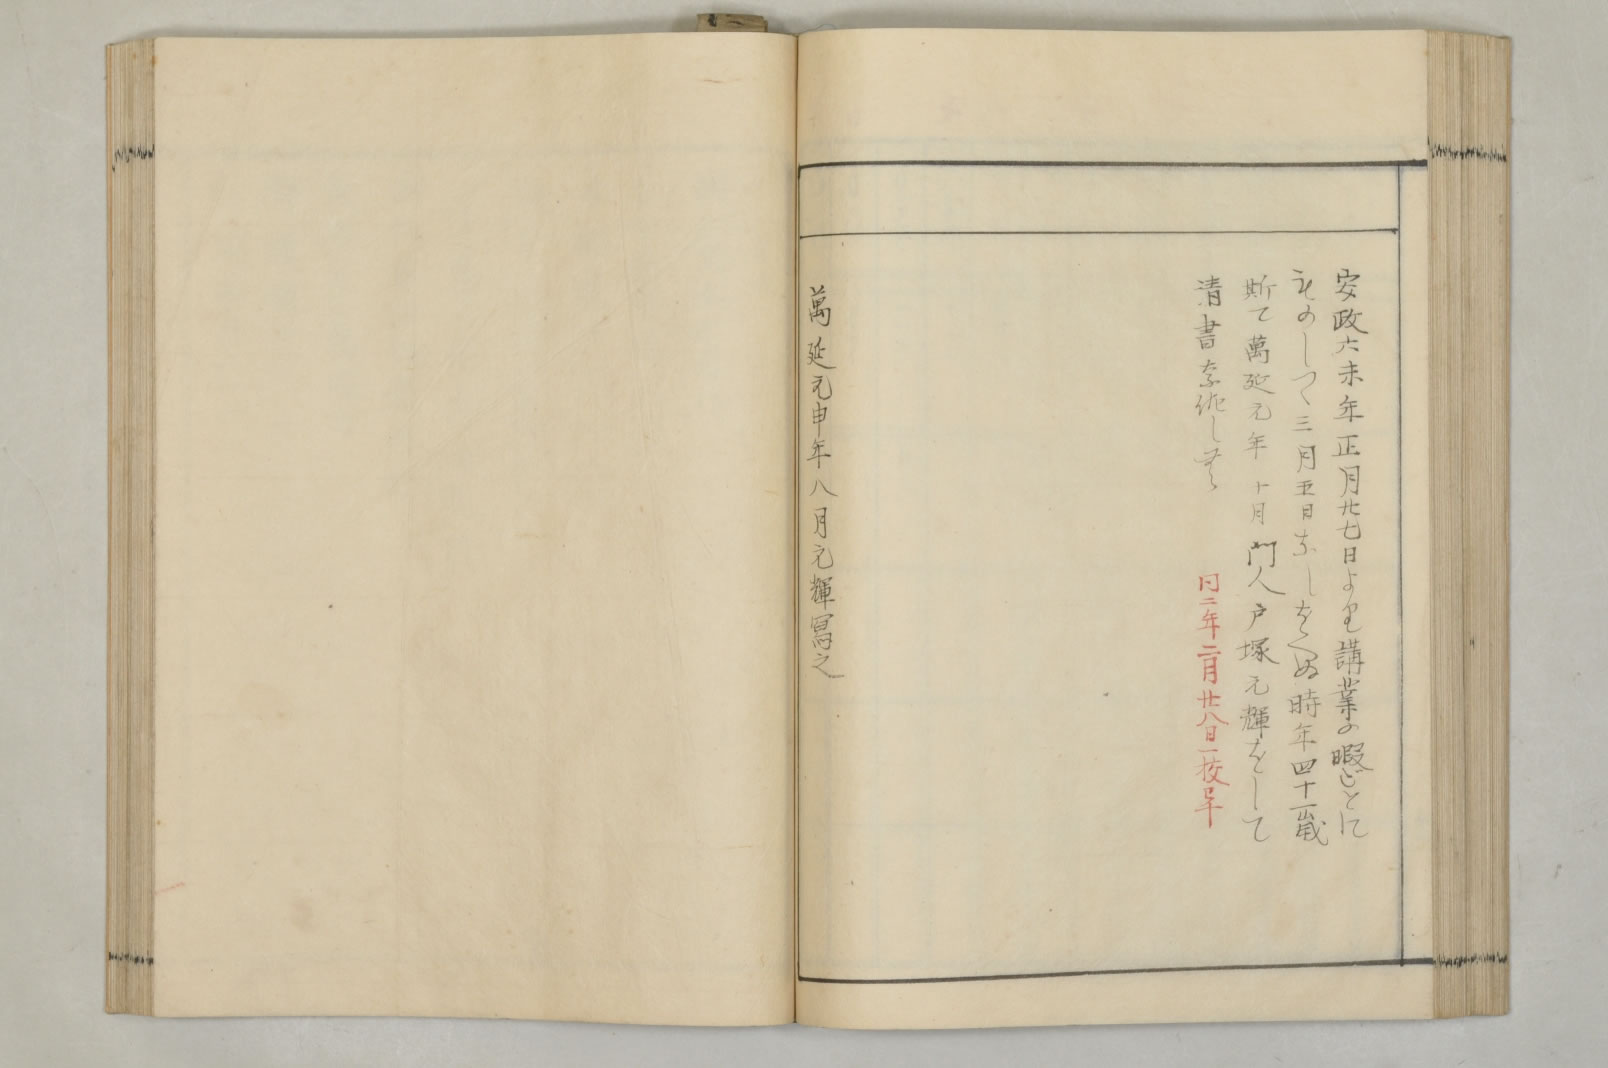 安政六未年正月廿七日より講業の暇ごとに
ものしつゝ三月五日なしをへぬ時年四十一歳
斯て萬延元年十月門人戸塚元輝をして
清書奈佐し
同二年二月廿八日一校早
萬延元申年八月元輝冩之